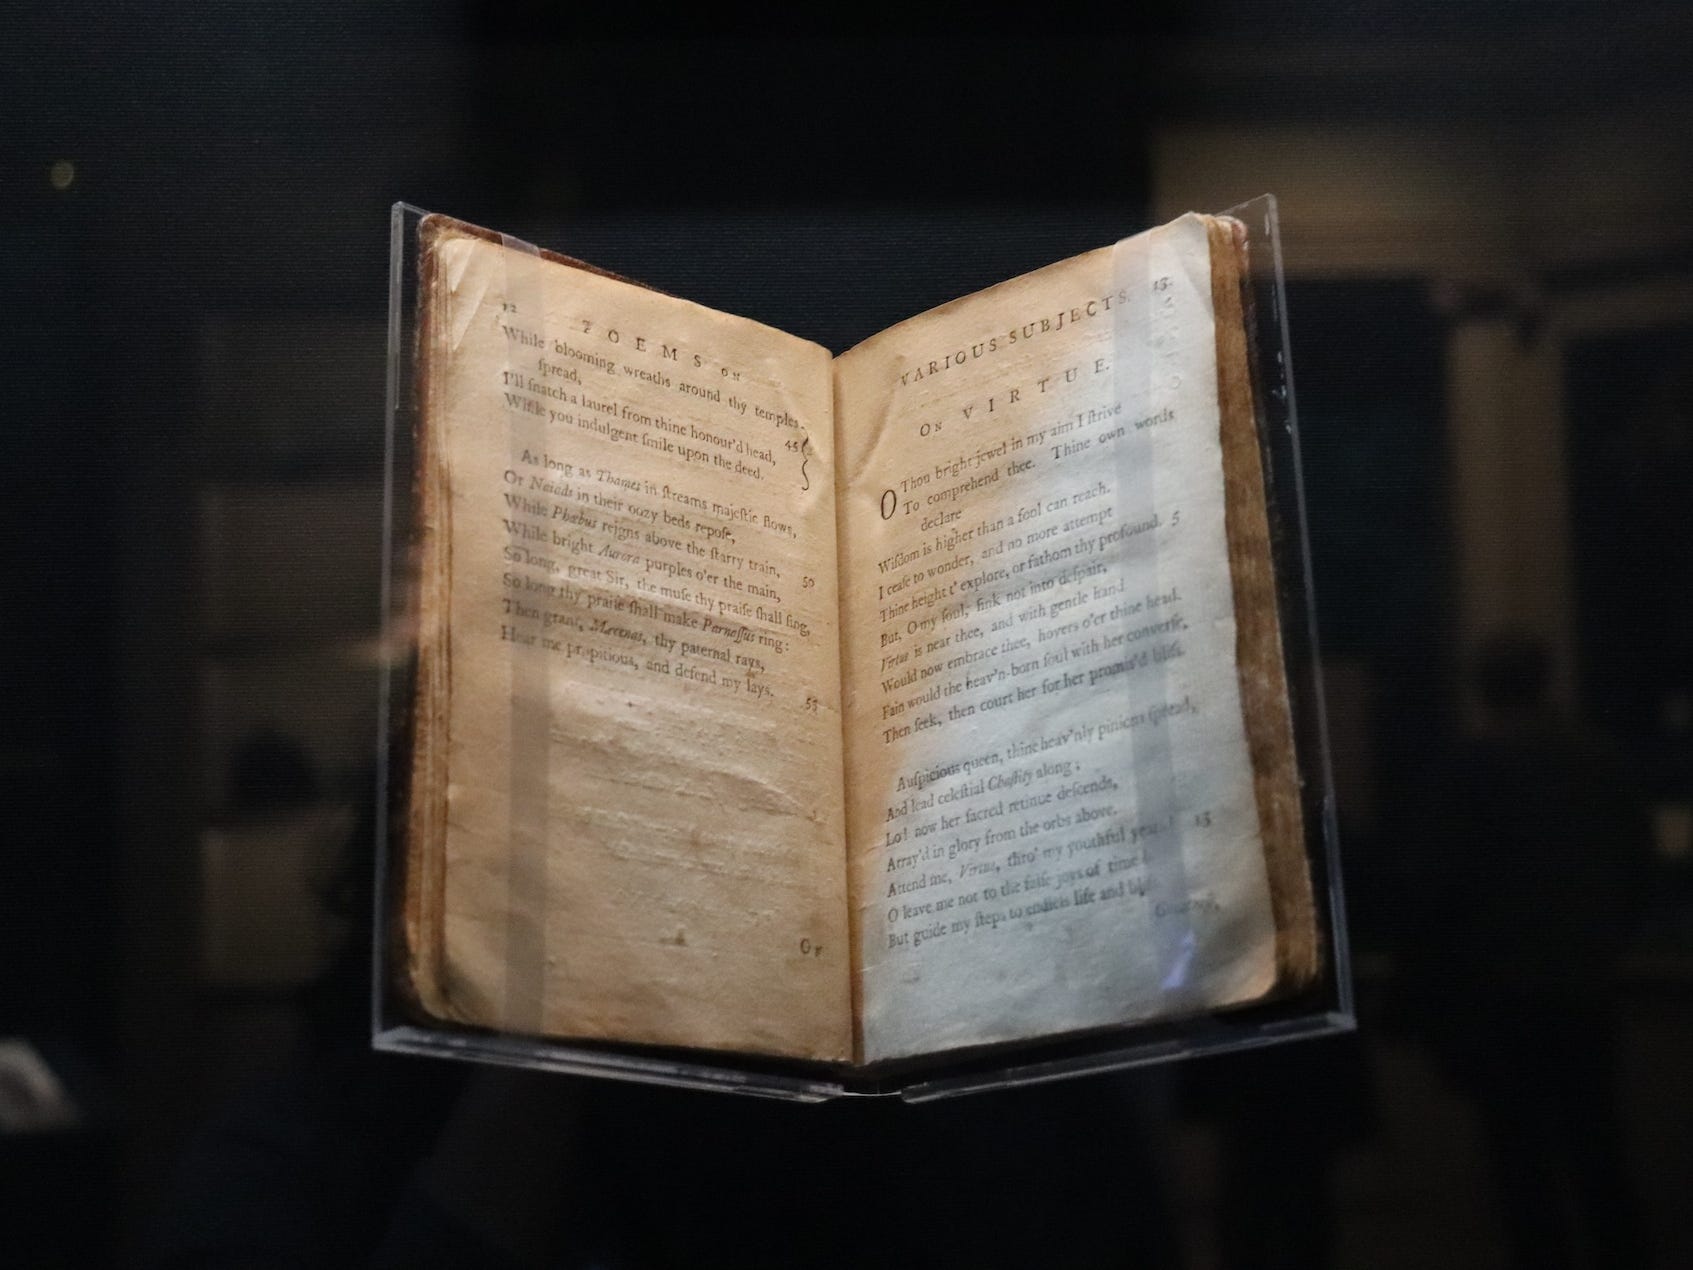 12
POEMS ON
While blooming wreaths around thy temples
ſpread,
I'll ſnatch a laurel from thine honour'd head,
While you indulgent ſmile upon the deed. 45
As long as Thames in ſtreams majeſtic flows,
Or Naiads in their oozy beds repoſe,
While Phœbus reigns above the ſtarry train,
While bright Aurora purples o'er the main, 50
So long, great Sir, the muſe thy praiſe ſhall ſing,
So long thy praiſe ſhall make Parnaſſus ring:
Then grant, Mæcenas, thy paternal rays,
Hear me propitious, and defend my lays. 55
On
VARIOUS SUBJECTS. 13
On VIRTUE.
O Thou bright jewel in my aim I ſtrive
To comprehend thee. Thine own words
declare
Wiſdom is higher than a fool can reach.
I ceaſe to wonder, and no more attempt
Thine height t' explore, or fathom thy profound. 5
But, O my ſoul, ſink not into deſpair,
Virtue is near thee, and with gentle hand
Would now embrace thee, hovers o'er thine head.
Fain would the heav'n-born ſoul with her converſe,
Then ſeek, then court her for her promis'd bliſs.
Auſpicious queen, thine heav'nly pinions ſpread,
And lead celeſtial Chaſtity along;
Lo! now her ſacred retinue deſcends,
Array'd in glory from the orbs above.
Attend me, Virtue, thro' my youthful years! 15
O leave me not to the falſe joys of time!
But guide my ſteps to endleſs life and bliſs.